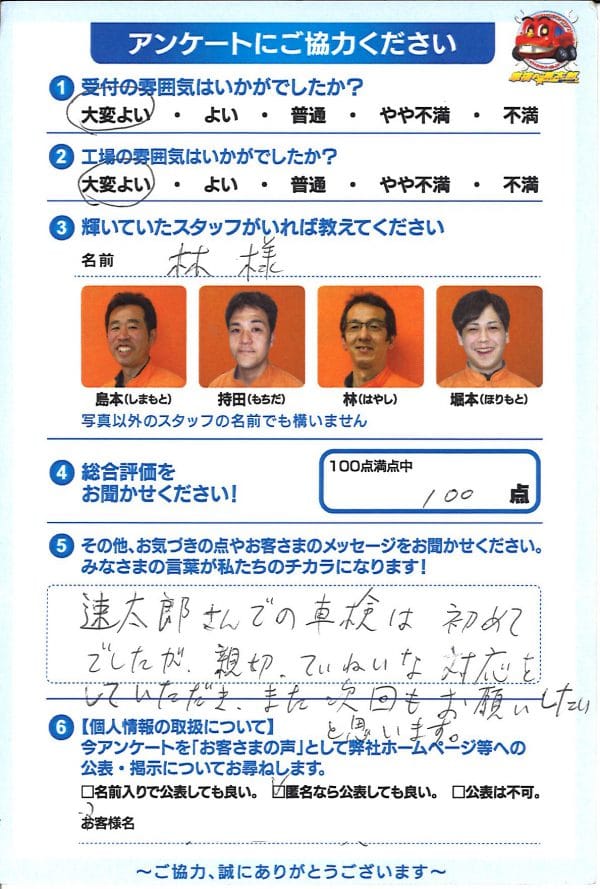 アンケートにご協力ください
1 受付の雰囲気はいかがでしたか?
大変よい ・ よい ・ 普通 ・ やや不満 ・ 不満
2 工場の雰囲気はいかがでしたか?
大変よい ・ よい ・ 普通 ・ やや不満 ・ 不満
3 輝いていたスタッフがいれば教えてください
名前 林 様
島本(しまもと) 持田(もちだ) 林(はやし) 堀本(ほりもと)
写真以外のスタッフの名前でも構いません
4 総合評価を
お聞かせください!
100点満点中
100 点
5 その他、お気づきの点やお客さまのメッセージをお聞かせください。
みなさまの言葉が私たちのチカラになります!
速太郎さんでの車検は 初めて
でしたが、親切、ていねいな 対応を
していただき、また次回もお願いしたい
と思います。
6 【個人情報の取扱について】
今アンケートを「お客さまの声」として弊社ホームページ等への
公表・掲示についてお尋ねします。
□名前入りで公表しても良い。 ☑匿名なら公表しても良い。 □公表は不可。
お客様名
~ご協力、誠にありがとうございます~